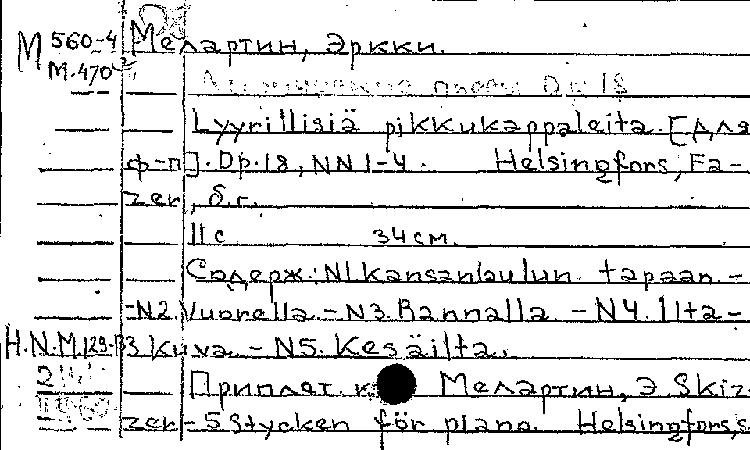 М 560-4 Мелартин, Эркки.
М.470
пьесы Op. 18
Lyyrillisiä pikkukappaleita. [Для
ф-п]. Op. 18, NN 1-4. Helsingfors, Fa-
zer, б.г.
11 с 34 см.
Содерж.: N1. Kansanlaulun tapaan. -
-N2. Vuorella. - N3. Rannalla. - N4. Ilta-
kuva. - N5. Kesäilta.
Приплет. к Мелартин, Э. Skiz-
zen - 5 Stycken för piano. Helsingfors, s.